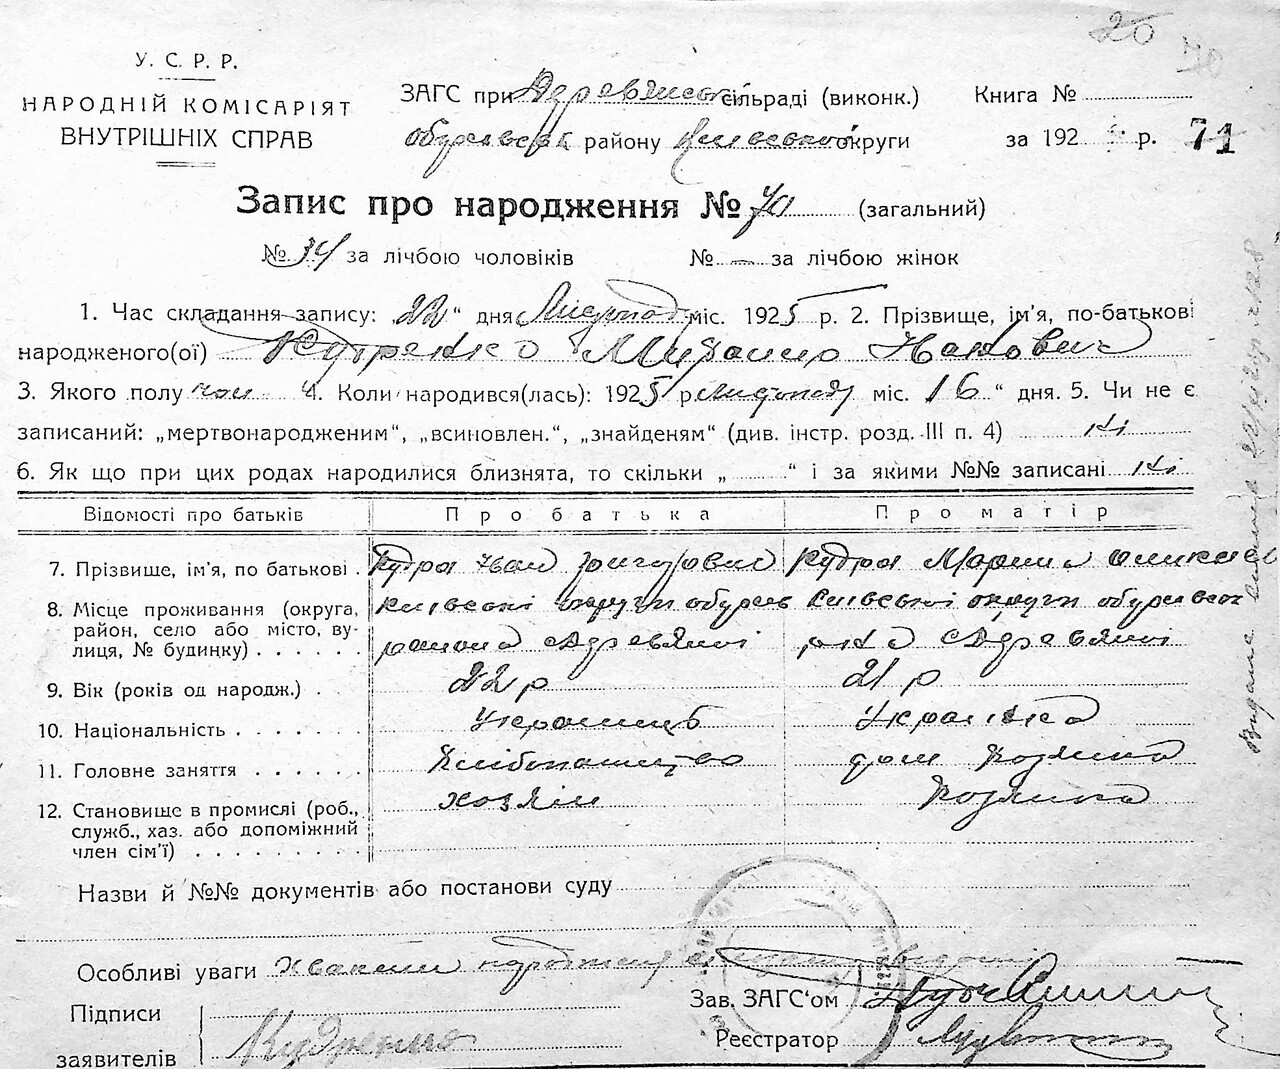 20 70
У. С. Р. Р.
НАРОДНІЙ КОМІСАРІЯТ
ВНУТРІШНІХ СПРАВ
ЗАГС при Деревянській сільраді (виконк.)
району Київської округи
Книга №
за 192 р. 71
Запис про народження № 70 (загальний)
№ 34 за лічбою чоловіків № — за лічбою жінок
1. Час складання запису: „22“ дня Листопад міс. 1925 р. 2. Прізвище, ім'я, по-батькові
народженого(ої) Михайло Іванович
3. Якого полу чол 4. Коли народився(лась): 1925 р. листопад міс. 16“ дня. 5. Чи не є
записаний: „мертвонародженим“, „всиновлен.“, „знайденям“ (див. інстр. розд. III п. 4) ні
6. Як що при цих родах народилися близнята, то скільки „ “ і за якими №№ записані ні
Відомості про батьків Про батька Про матір
7. Прізвище, ім'я, по батькові Кудра Іван Григорович Кудра Марина
8. Місце проживання (округа, Київської округи Київської округи
район, село або місто, ву- района Деревяної р-на Деревяної
лиця, № будинку)
9. Вік (років од народж.) 22 р 21 р
10. Національність Українець Українка
11. Головне заняття Хлібопашество дом хозяйка
12. Становище в промислі (роб., хозяїн хозяйка
служб., хаз. або допоміжний
член сім'ї)
Назви й №№ документів або постанови суду
Особливі уваги
Зав. ЗАГС'ом
Підписи
заявителів Кудренко
Реєстратор